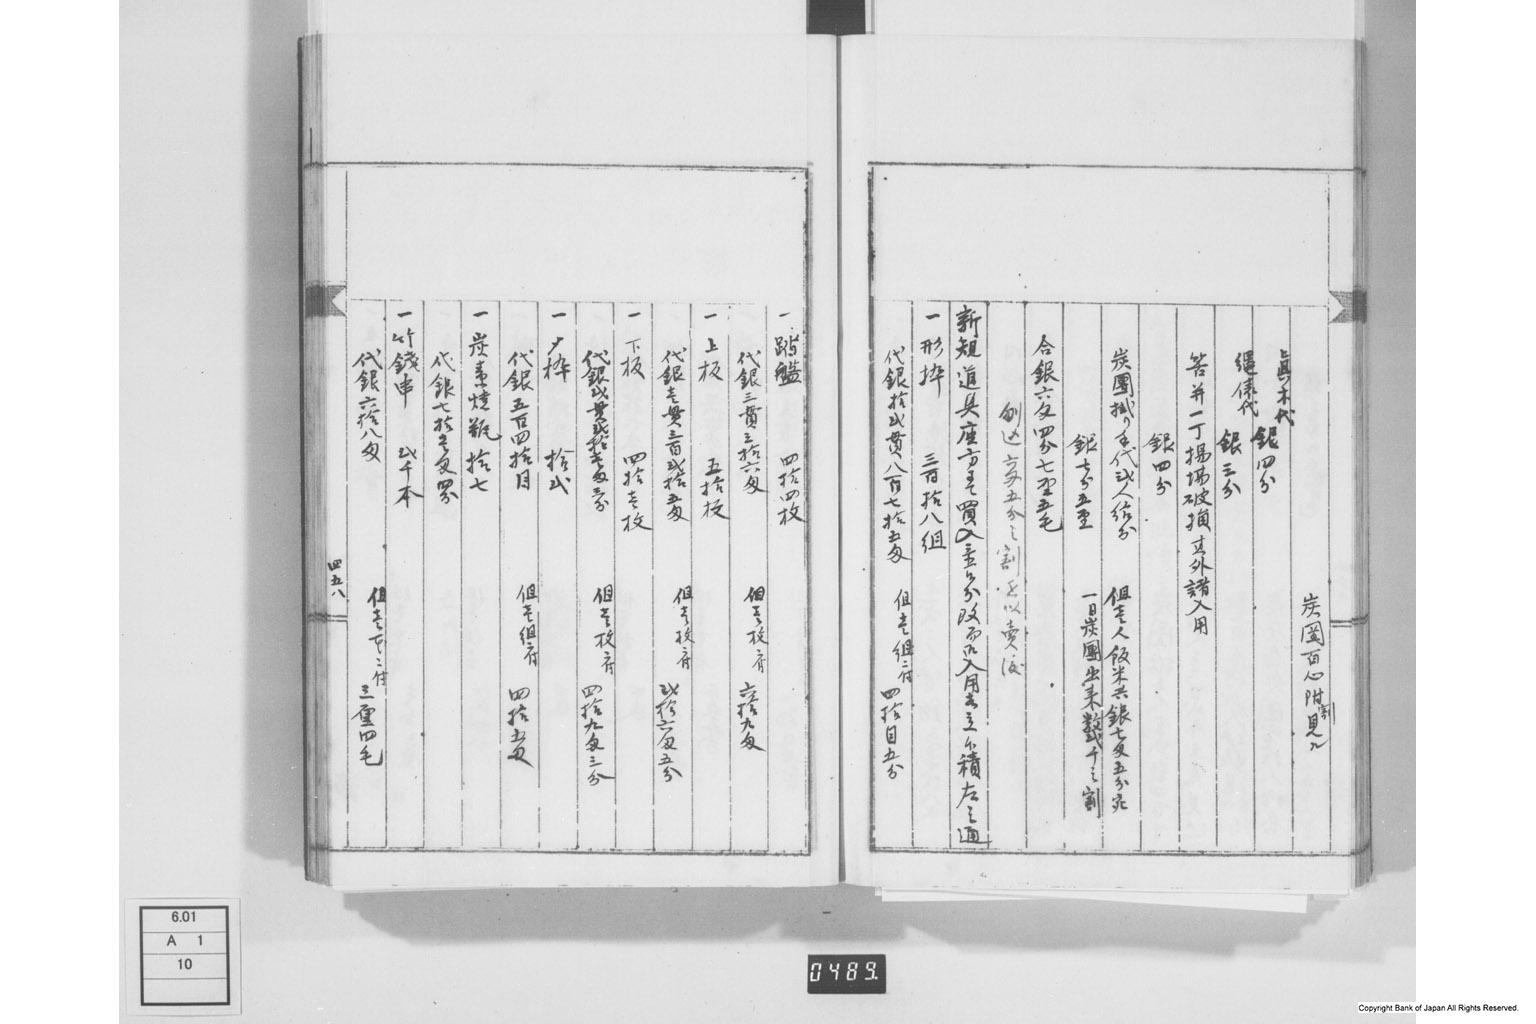 炭團百心附割見ル
眞木代
銀四分
繩俵代
銀三分
苫并一丁揚場破損其外諸入用
銀四分
炭團掛り手代弐人給分
但壱人飯米共銀七匁五分宛
銀七分五厘
一日炭團出来数弐千之割
合銀六匁四分七厘五毛
匁五分之割を以賣渡
新規道具座方ニ而買入
入用高之分積左之通
一 形枠 三百拾八組
代銀拾弐貫八百七拾五匁 但壱組ニ付 四拾目五分
一 踏艦 四拾四枚
代銀三貫三拾六匁 但壱枚ニ付 六拾九匁
一 上板 五拾枚
代銀壱貫三百弐拾五匁 但壱枚ニ付 弐拾六匁五分
一 下板 四拾壱枚
代銀弐貫弐拾壱匁三分 但壱枚ニ付 四拾九匁三分
一 夕枠 拾弐
代銀五百四拾目 但壱組ニ付 四拾五匁
一 炭素焼瓶 拾七
代銀七拾壱匁四分
一 竹錢串 弐千本
代銀六拾八匁 但壱本ニ付 三厘四毛
四五八
6.01
A 1
10
0489.
Copyright Bank of Japan All Rights Reserved.